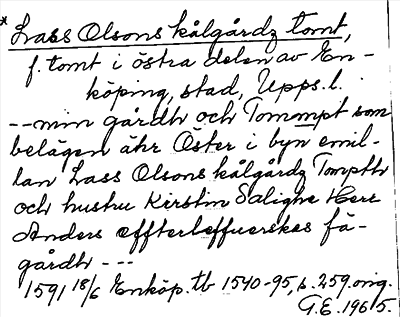 * Lass Olsons kålgårdz tomt,
f. tomt i östra delen av En-
köping, stad, Upps. l.
-- min gårdh och Tommpt som
belägen ähr Öster i byn emil-
lan Lass Olsons kålgårdz Tompth
och hustru Kirstin Salighe Herr
Anders effterleffuerskes få-
gårdh ---
1591 18/6 Enköp. tb 1540-95, s. 259. orig.
G.E. 1965.